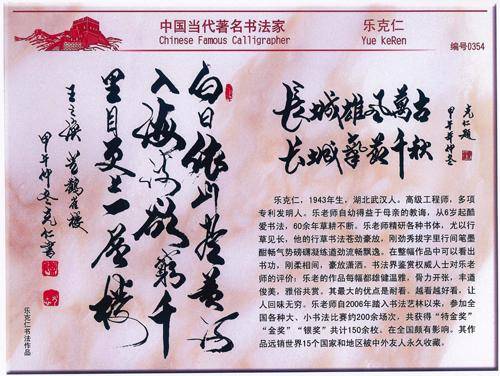 中国当代著名书法家
Chinese Famous Calligrapher
乐克仁
Yue KeRen
编号0354
白日依山盡黄河
入海流欲窮千
里目更上一层楼
王之涣 登鹳雀楼
甲午仲冬克仁书
乐克仁书法作品
長城雄风萬古
长城藝苑千秋
克仁题
甲午年仲冬
乐克仁，1943年生，湖北武汉人。高级工程师，多项
专利发明人。乐老师自幼得益于母亲的教诲，从6岁起酷
爱书法，60余年草耕不断。乐老师精研各种书体，尤以行
草见长，他的行草书法苍劲豪放，刚劲秀拔字里行间笔墨
酣畅气势磅礴凝练遒劲流畅飘逸。在整幅作品中可以看出
书功，刚柔相间，豪放潇洒。书法界鉴赏权威人士对乐老
师的评价：乐老的作品每幅都雄健温雅。骨力开张，丰遒
俊美，雅俗共赏。其最大的优点是耐看。越看越好看，让
人回味无穷。乐老师自2006年踏入书法艺林以来，参加全
国各种大、小书法比赛约200余场次，共获得“特金奖”
“金奖”“银奖”共计150余枚。在全国颇有影响。其作
品远销世界15个国家和地区被中外友人永久收藏。